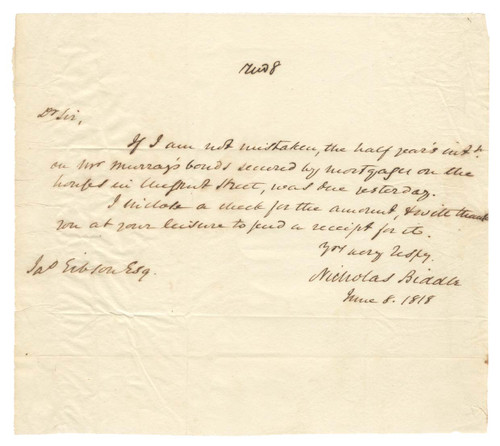 Dr Sir,
If I am not mistaken, the half year's intt
on Mr Murray's bonds secured by mortgages on the
houses in Chesnut Street, was due yesterday.
I inclose a check for the amount, & will thank
you at your leisure to send a receipt for it.
Yrs very respy.
Jas Gibson Esq.
Nicholas Biddle
June 8. 1818